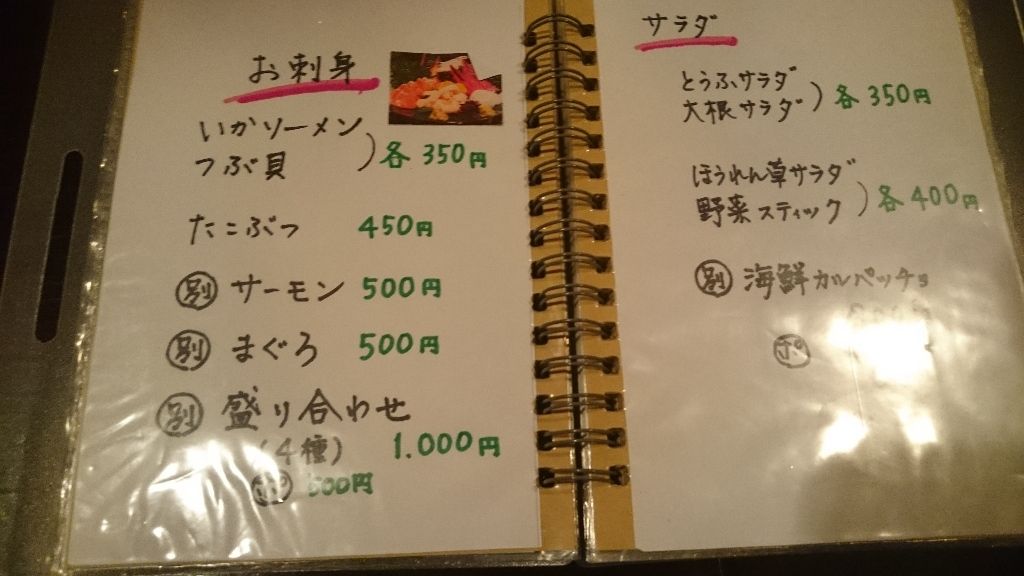 お刺身
いかソーメン
つぶ貝
) 各 350円
たこぶつ 450円
別 サーモン 500円
別 まぐろ 500円
別 盛り合わせ
(4種) 1.000円
ポ 500円
サラダ
とうふサラダ
大根サラダ
) 各 350円
ほうれん草サラダ
野菜スティック
) 各 400円
別 海鮮カルパッチョ
ポ